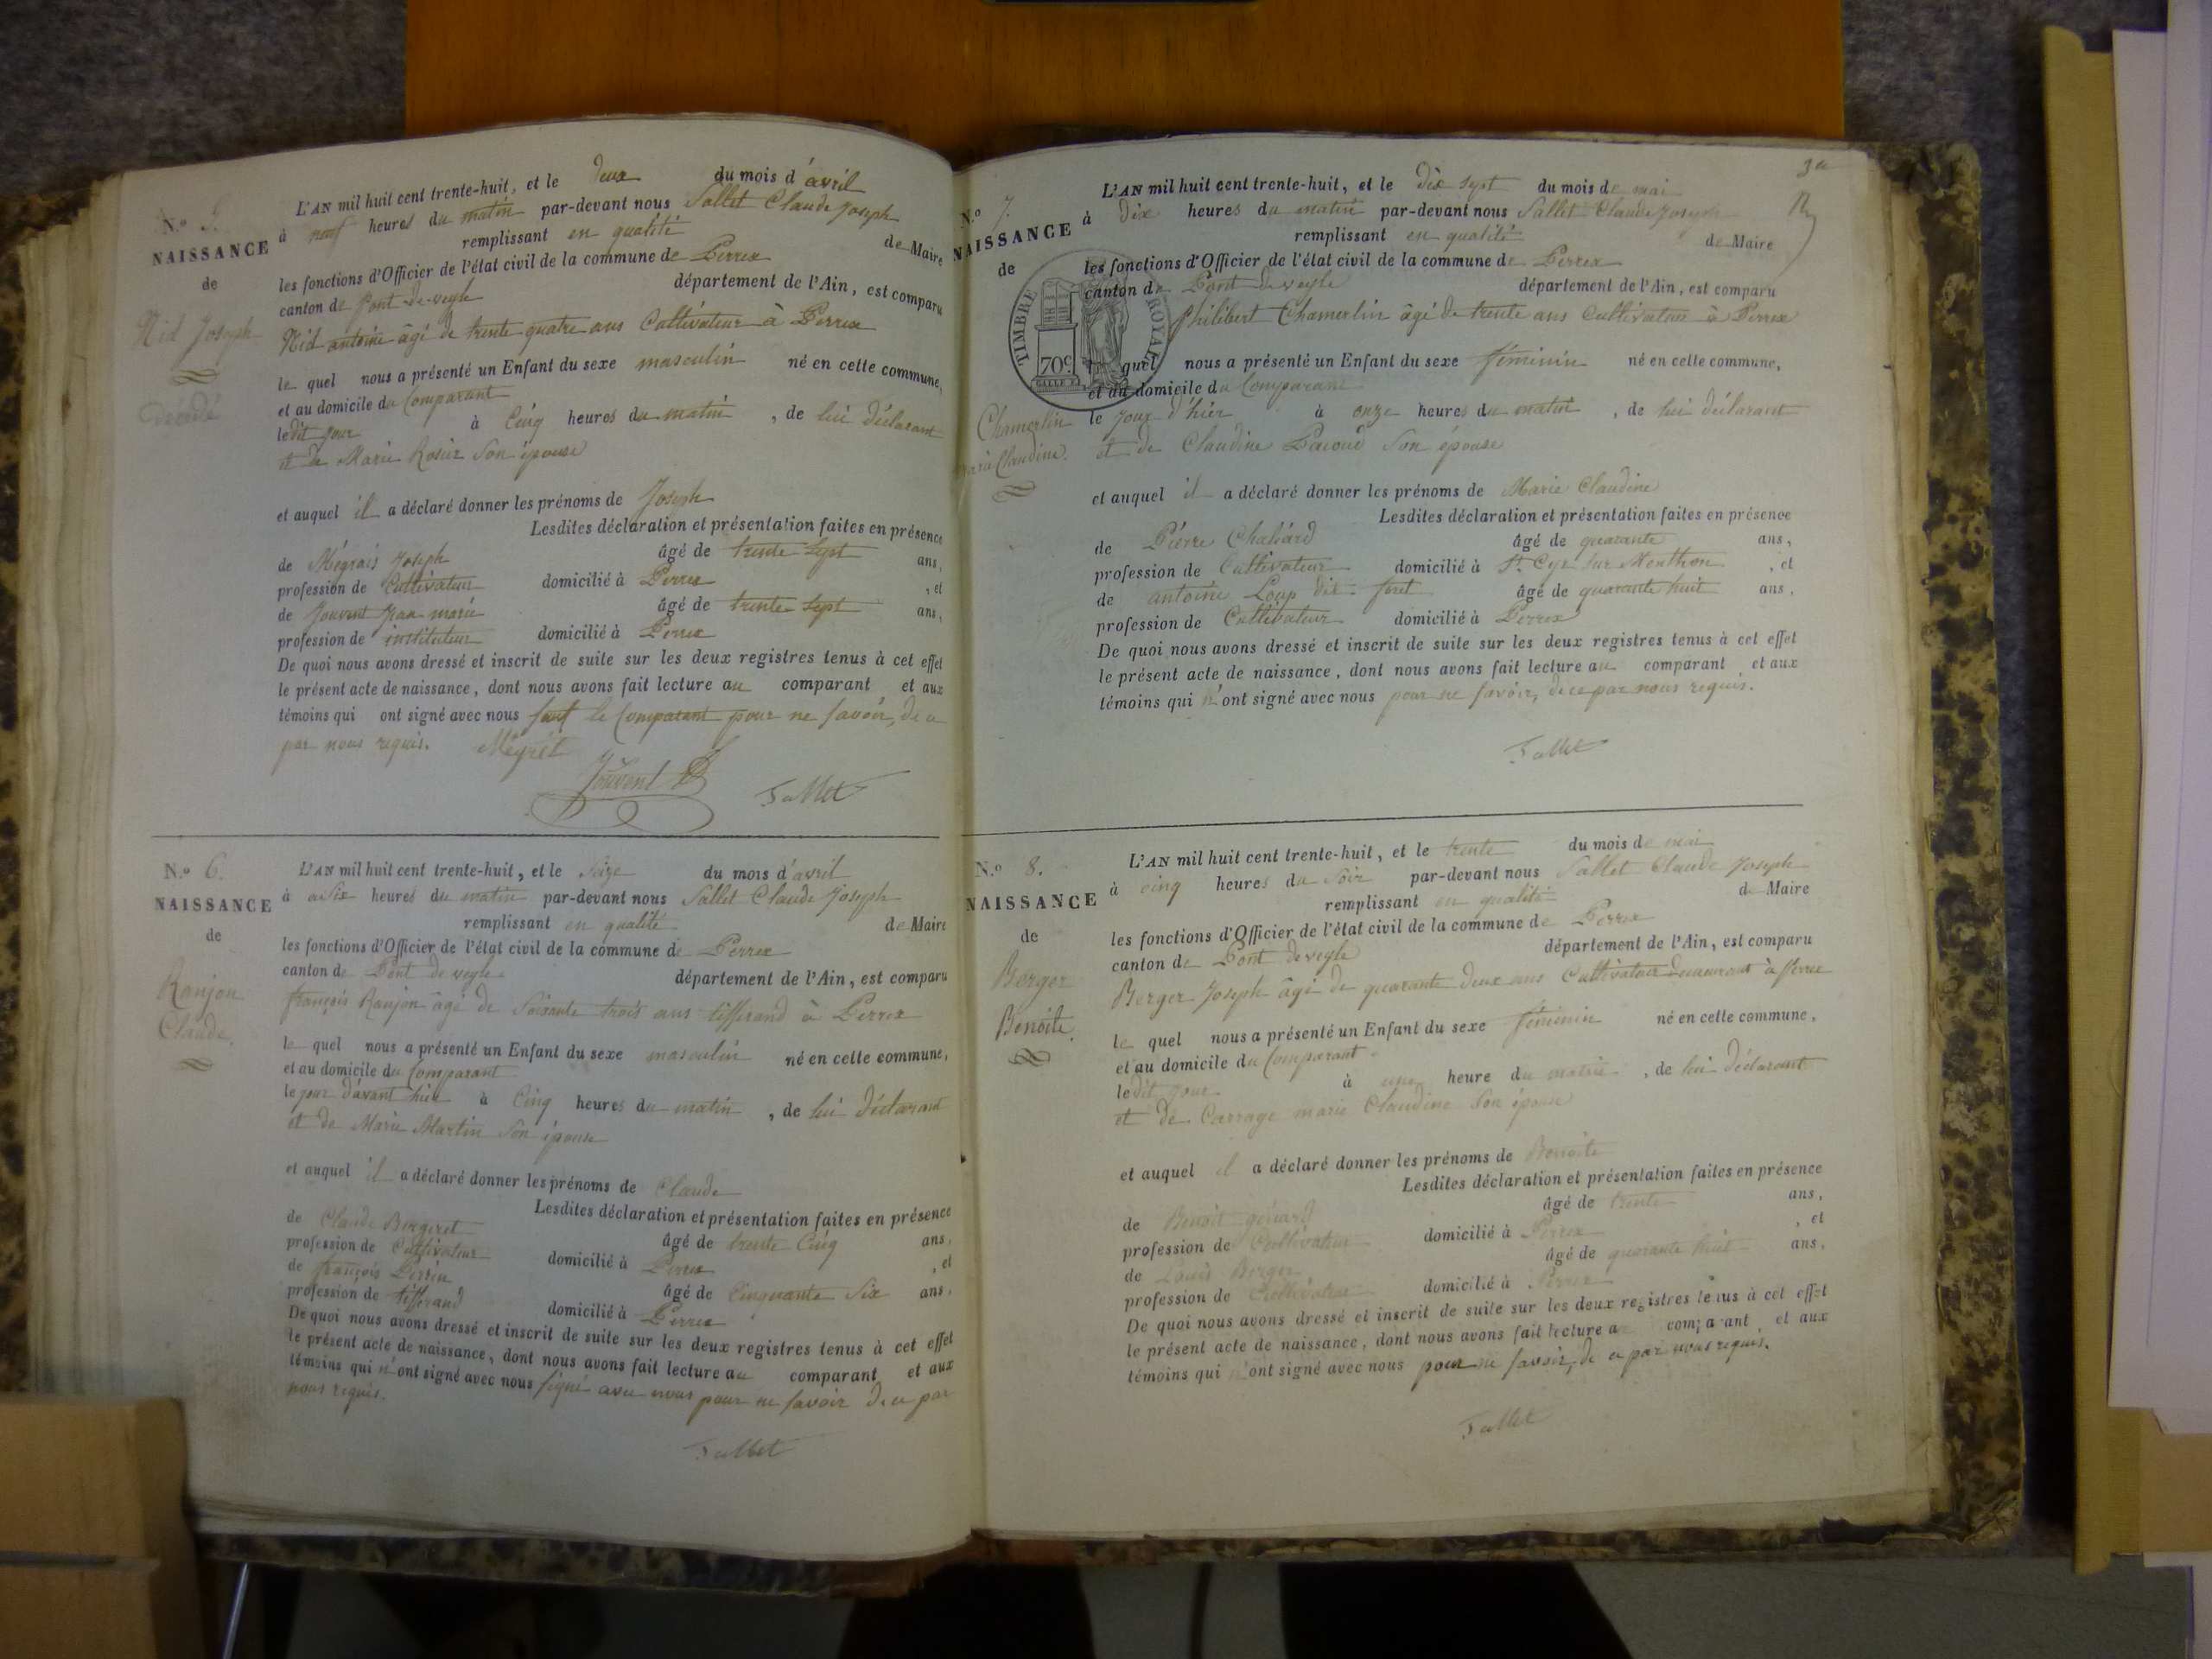 N.º 5.
NAISSANCE
de
Nid Joseph
L'AN mil huit cent trente-huit, et le deux du mois d'avril
à neuf heures du matin par-devant nous Sallet Claude Joseph
remplissant en qualité de Maire
les fonctions d'Officier de l'état civil de la commune de Perrex
canton de Pont-de-veyle département de l'Ain, est comparu
Nid antoine âgé de trente quatre ans Cultivateur à Perrex
le quel nous a présenté un Enfant du sexe masculin né en cette commune,
et au domicile du Comparant
ledit jour à Cinq heures du matin, de lui déclarant
et de Marie Rosier Son épouse
et auquel il a déclaré donner les prénoms de Joseph
Lesdites déclaration et présentation faites en présence
de Joseph âgé de trente Sept ans,
profession de Cultivateur domicilié à Perrex, et
de Jouvent Jean marie âgé de trente Sept ans,
profession de instituteur domicilié à Perrex
De quoi nous avons dressé et inscrit de suite sur les deux registres tenus à cet effet
le présent acte de naissance, dont nous avons fait lecture au comparant et aux
témoins qui ont signé avec nous sauf le Comparant pour ne savoir, de ce
par nous requis.
Jouvent
Sallet
N.º 6.
NAISSANCE
de
Ranjon
Claude.
L'AN mil huit cent trente-huit, et le Seize du mois d'avril
à Six heures du matin par-devant nous Sallet Claude Joseph
remplissant en qualité de Maire
les fonctions d'Officier de l'état civil de la commune de Perrex
canton de Pont de veyle département de l'Ain, est comparu
françois Ranjon âgé de Soixante trois ans tisserand à Perrex
le quel nous a présenté un Enfant du sexe masculin né en cette commune,
et au domicile du Comparant
le jour d'avant hier à Cinq heures du matin, de lui déclarant
et de Marie Martin Son épouse
et auquel il a déclaré donner les prénoms de Claude
Lesdites déclaration et présentation faites en présence
de Claude Bergeret âgé de trente Cinq ans,
profession de Cultivateur domicilié à Perrex, et
de françois Perrin âgé de Cinquante Six ans,
profession de tisserand domicilié à Perrex
De quoi nous avons dressé et inscrit de suite sur les deux registres tenus à cet effet
le présent acte de naissance, dont nous avons fait lecture au comparant et aux
témoins qui n'ont signé avec nous signé avec nous pour ne savoir de ce par
nous requis.
Sallet
3
N.º 7.
NAISSANCE
de
Chamerlin
Marie Claudine.
TIMBRE ROYAL
70c
L'AN mil huit cent trente-huit, et le dix sept du mois de mai
à dix heures du matin par-devant nous Sallet Claude Joseph
remplissant en qualité de Maire
les fonctions d'Officier de l'état civil de la commune de Perrex
canton de Pont de veyle département de l'Ain, est comparu
Philibert Chamerlin âgé de trente ans Cultivateur à Perrex
le quel nous a présenté un Enfant du sexe féminin né en cette commune,
et au domicile du Comparant
le jour d'hier à onze heures du matin, de lui déclarant
et de Claudine Pacoud Son épouse
et auquel il a déclaré donner les prénoms de Marie Claudine
Lesdites déclaration et présentation faites en présence
de Pierre Chaliard âgé de quarante ans,
profession de Cultivateur domicilié à St. Cyr Sur Menthon, et
de antoine Loup dit âgé de quarante huit ans,
profession de Cultivateur domicilié à Perrex
De quoi nous avons dressé et inscrit de suite sur les deux registres tenus à cet effet
le présent acte de naissance, dont nous avons fait lecture au comparant et aux
témoins qui n'ont signé avec nous pour ne savoir, de ce par nous requis.
Sallet
N.º 8.
NAISSANCE
de
Berger
Benoite.
L'AN mil huit cent trente-huit, et le trente du mois de mai
à cinq heures du Soir par-devant nous Sallet Claude Joseph
remplissant en qualité de Maire
les fonctions d'Officier de l'état civil de la commune de Perrex
canton de Pont de veyle département de l'Ain, est comparu
Berger Joseph âgé de quarante deux ans Cultivateur demeurant à Perrex
le quel nous a présenté un Enfant du sexe féminin né en cette commune,
et au domicile du Comparant
ledit jour à une heure du matin, de lui déclarant
et de Carrage marie Claudine Son épouse
et auquel il a déclaré donner les prénoms de Benoite
Lesdites déclaration et présentation faites en présence
de Benoit âgé de trente ans,
profession de Cultivateur domicilié à Perrex, et
de Louis Berger âgé de quarante huit ans,
profession de Cultivateur domicilié à Perrex
De quoi nous avons dressé et inscrit de suite sur les deux registres tenus à cet effet
le présent acte de naissance, dont nous avons fait lecture au comparant et aux
témoins qui n'ont signé avec nous pour ne savoir, de ce par nous requis.
Sallet